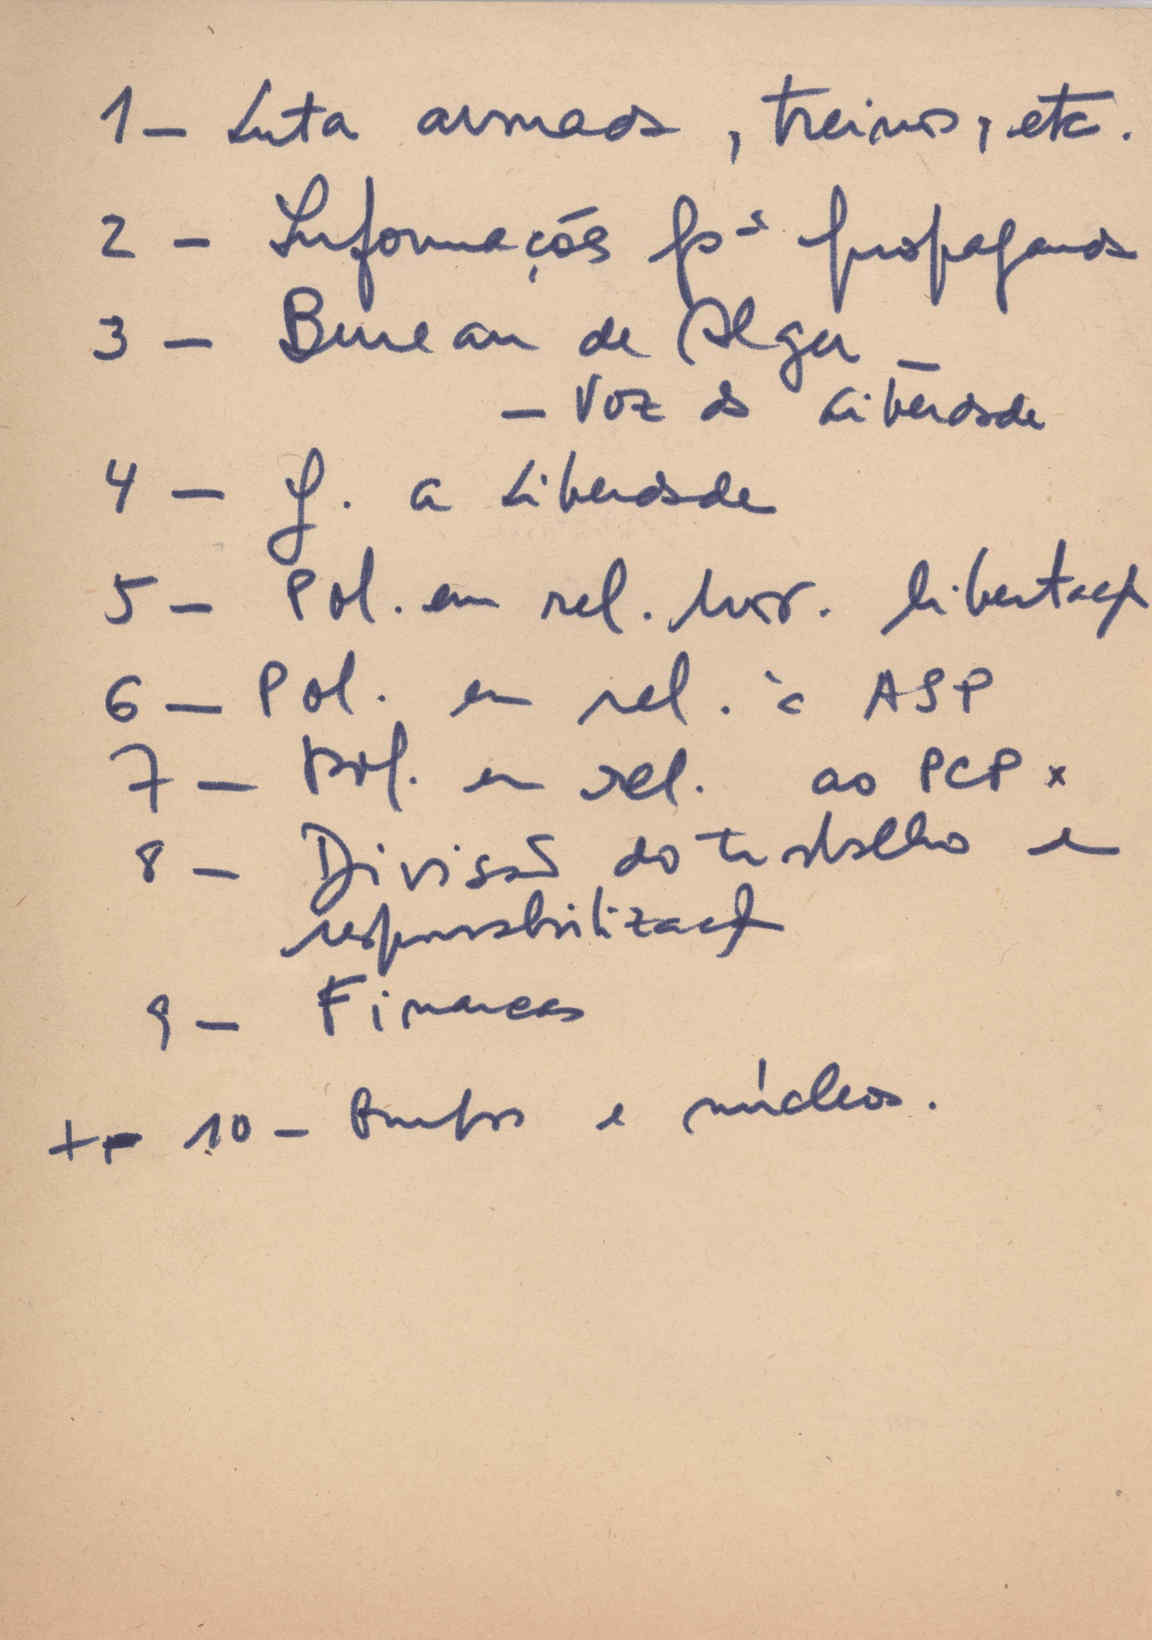 1 – Luta armada, treinos, etc.
2 – Informações pª propaganda
3 – Bureau de Alger –
– Voz da Liberdade
4 – J. a Liberdade
5 – Pol. em rel. mov. libertaç
6 – Pol. em rel. à ASP
7 – Pol. em rel. ao PCP x
8 – Divisão do trabalho e
responsabilizaç
9 – Finanças
+ – 10 – e núcleos.